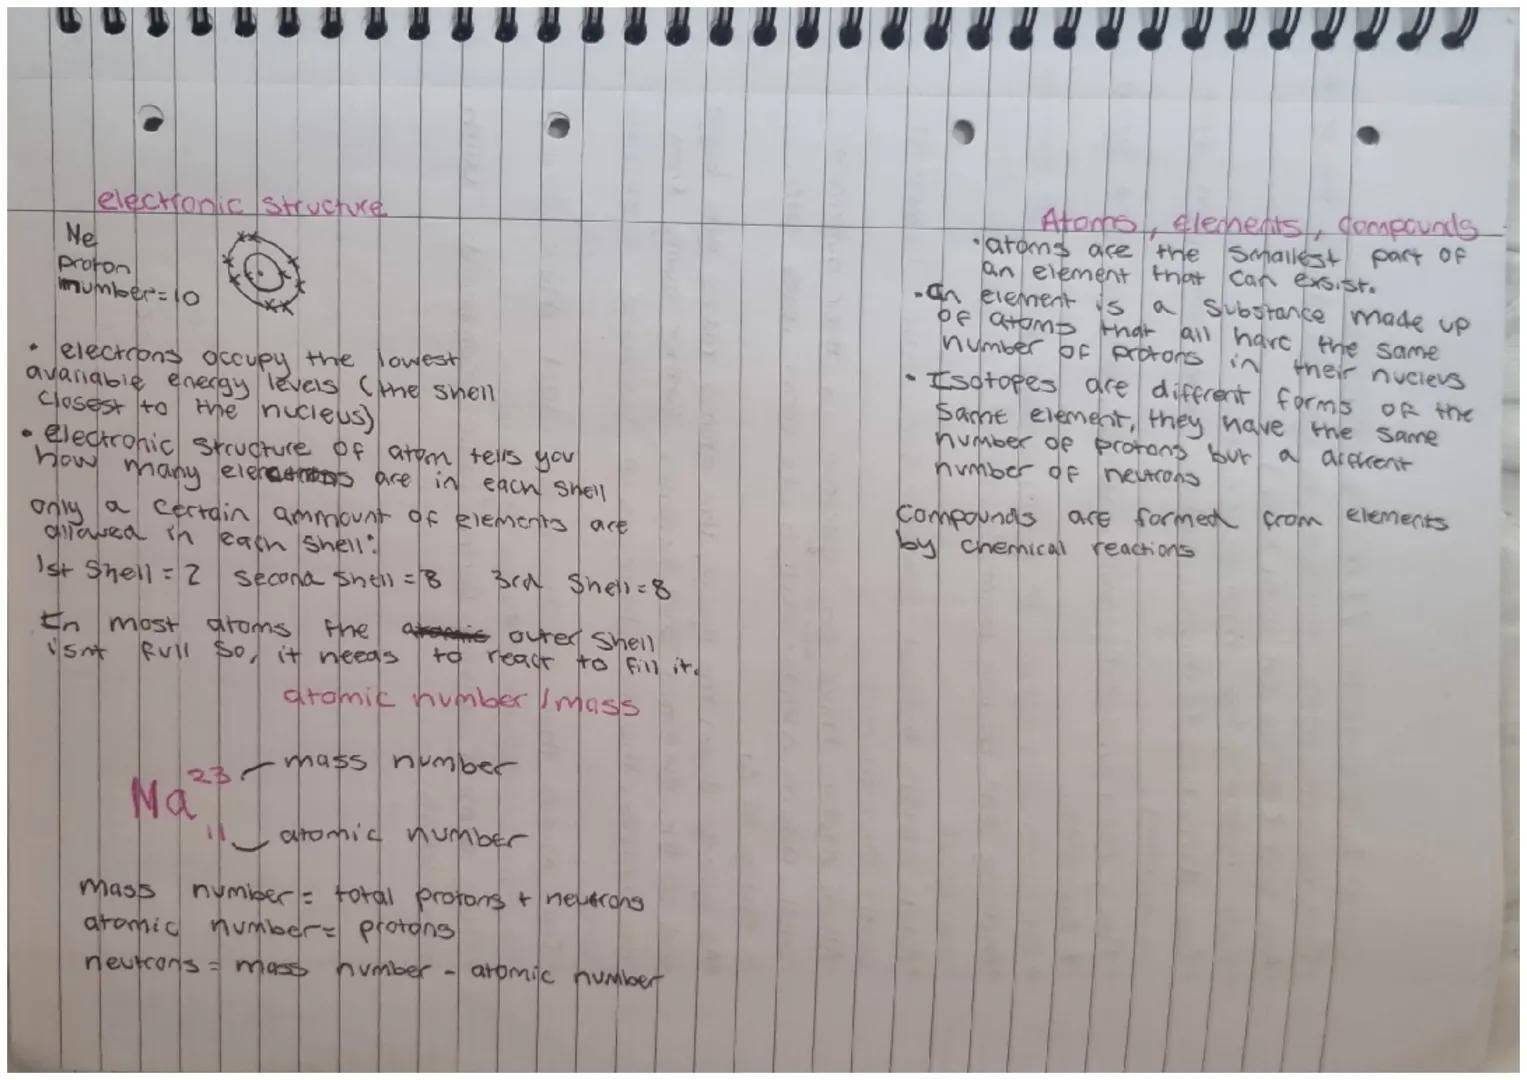 electronic structure
Ne
proton
number=10
• electrons occupy the lowest
avaliable energy levels (the shell
closest to the nucleus)
• electronic structure of atom tells you
how many electrons are in each shell
only a certain ammount of elements are
allowed in each shell:
1st Shell = 2 second shell = 8 3rd Shell = 8
In most atoms the outer shell
isnt full so, it needs to react to fill it.
atomic number / mass
Na 23 mass number
11 atomic number
mass number = total protons + neutrons
atomic number = protons
neutrons = mass number - atomic number
Atoms, elements, compounds
• atoms are the smallest part of
an element that can exsist.
• an element is a substance made up
of atoms that all have the same
number of protons in their nucleus
• Isotopes are different forms of the
same element, they have the same
number of protons but a different
number of neutrons
compounds are formed from elements
by chemical reactions